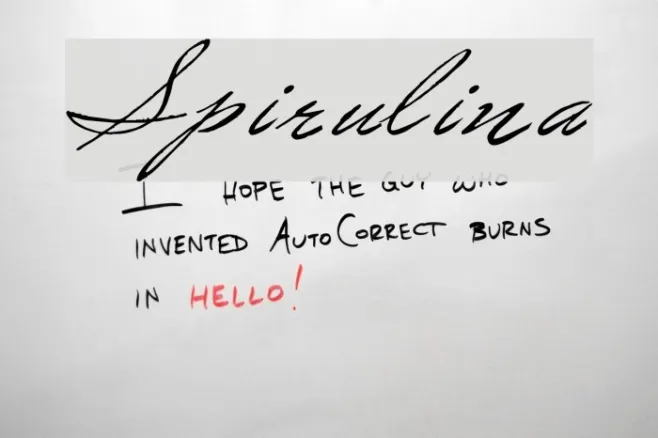 Spirulina
I HOPE THE GUY WHO
INVENTED AUTOCORRECT BURNS
IN HELLO!